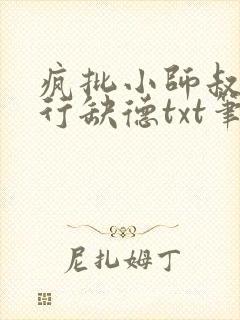 疯批小師叔
行缺德txt筆
尼扎姆丁